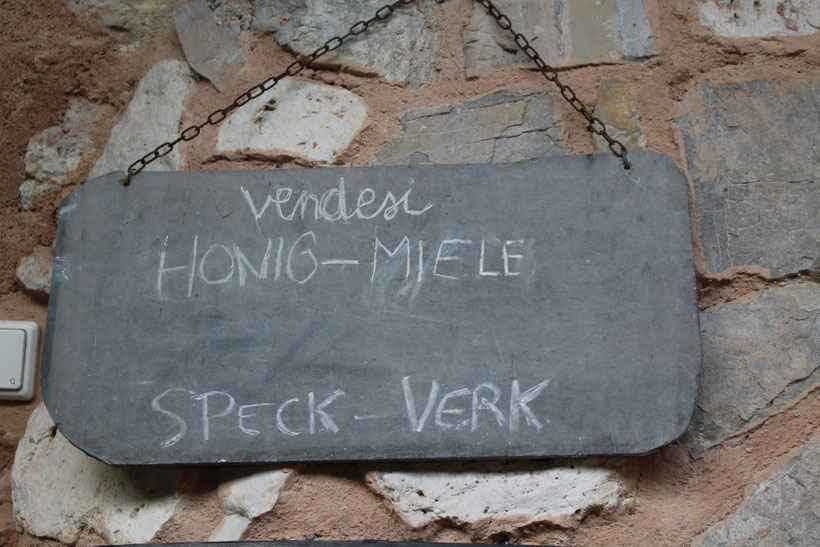 vendesi
HONIG - MIELE
SPECK - VERK